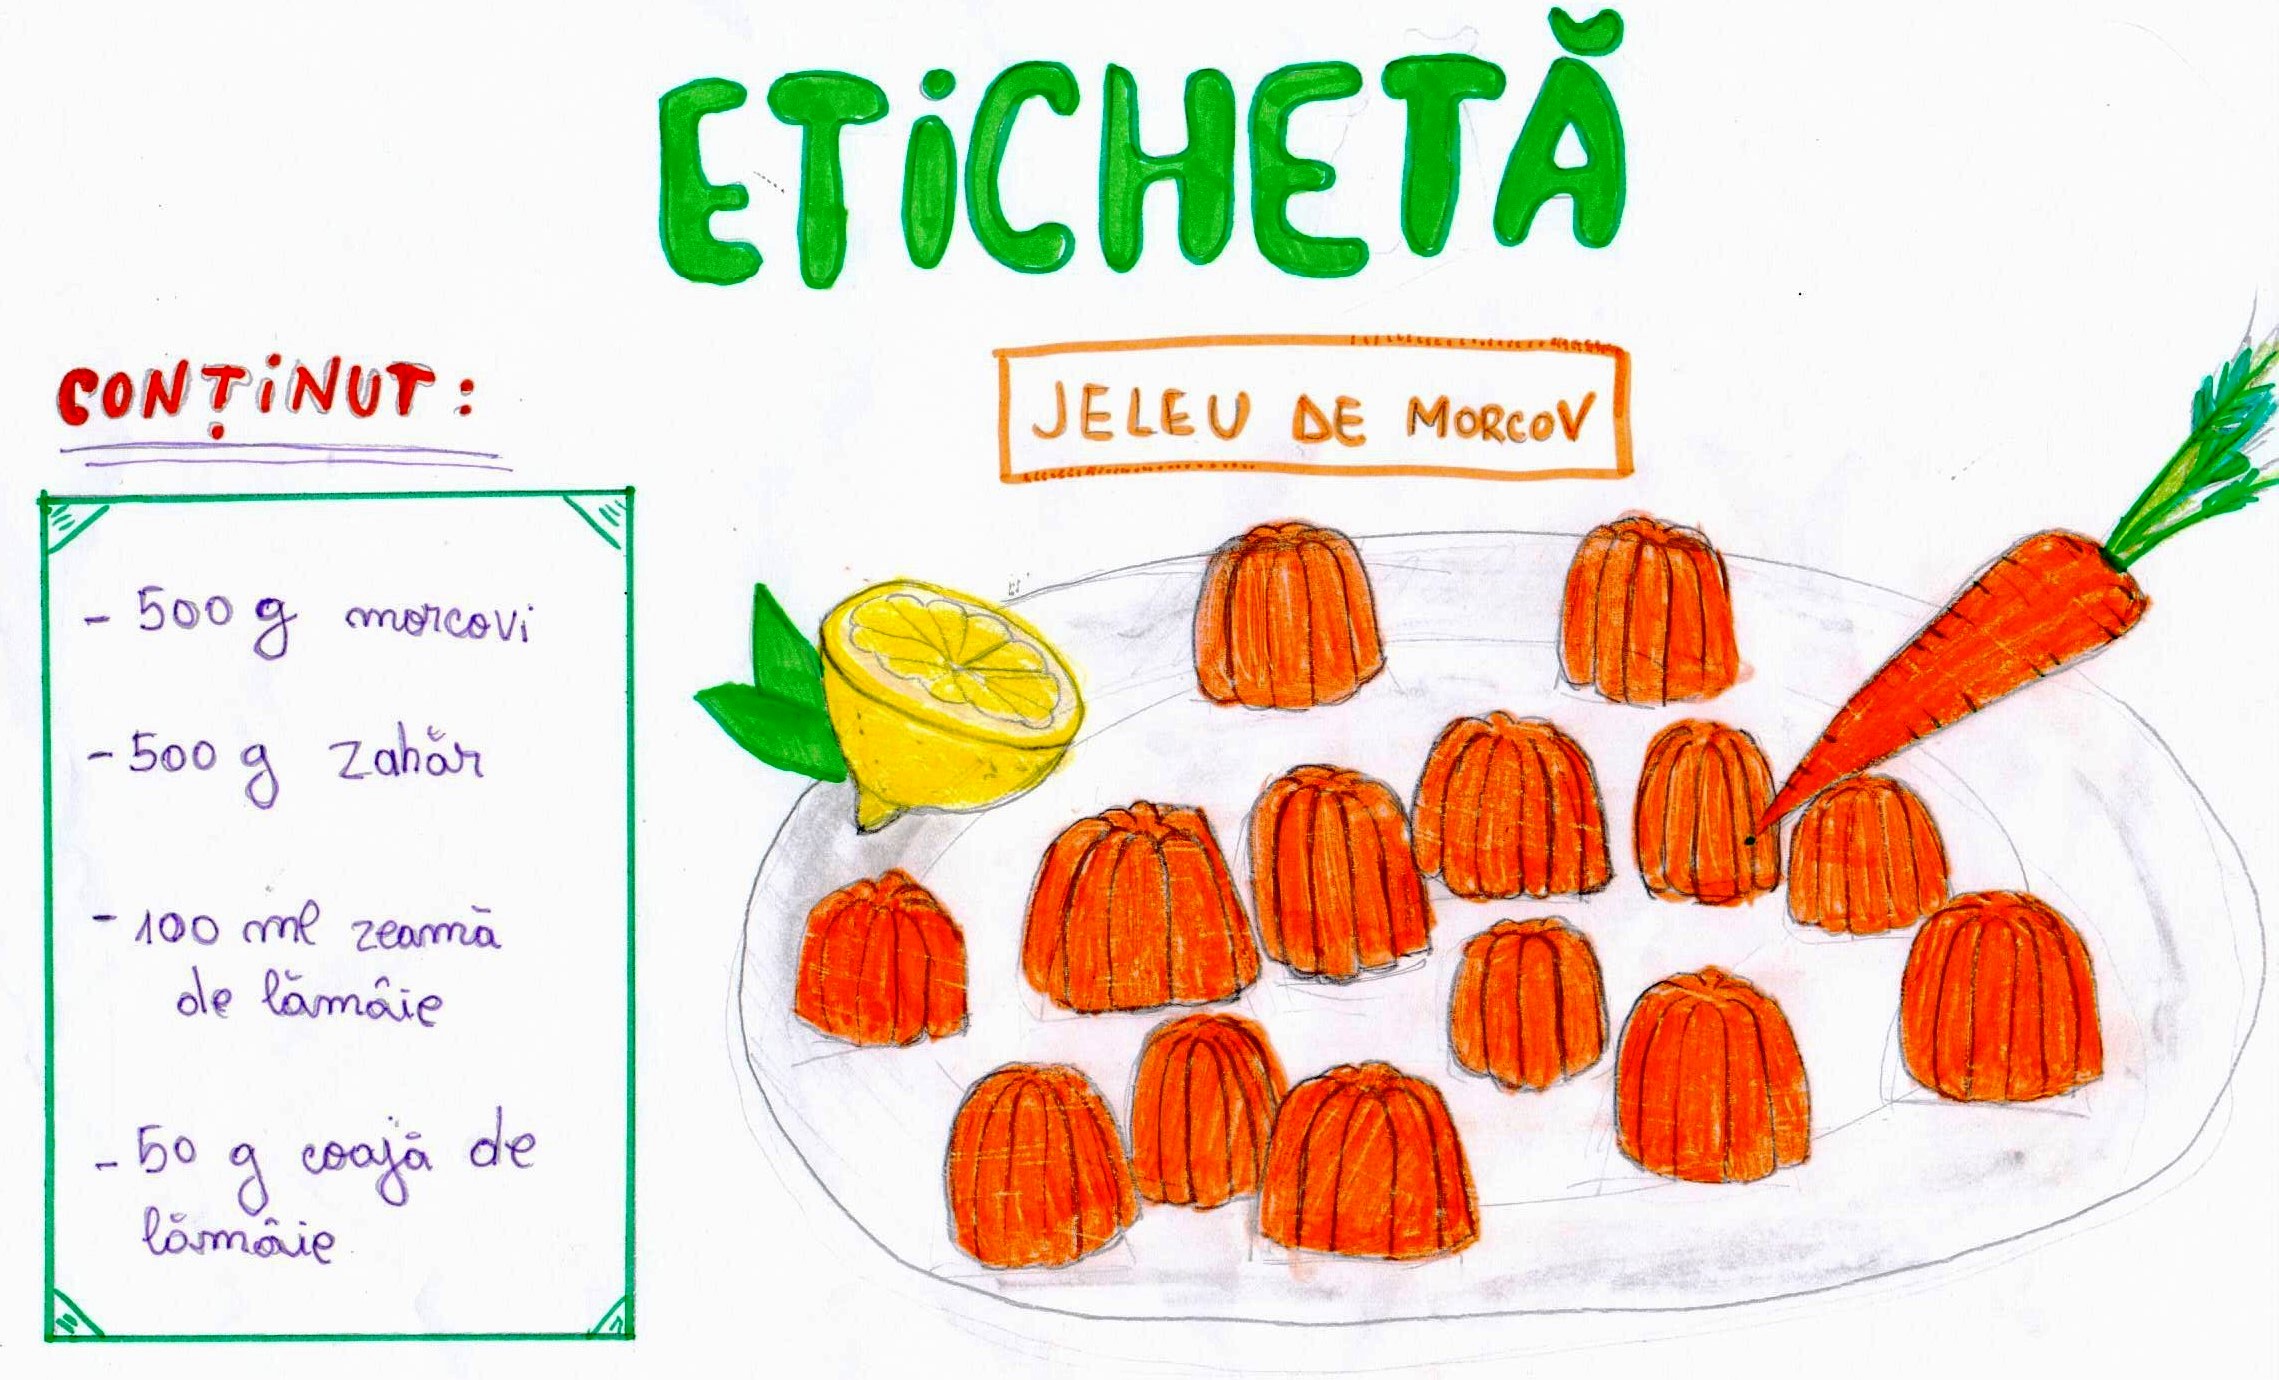 ETiCHETĂ
CONȚiNUT:
JELEU DE MORCOV
- 500 g morcovi
- 500 g zahăr
- 100 ml zeamă
de lămâie
- 50 g coajă de
lămâie